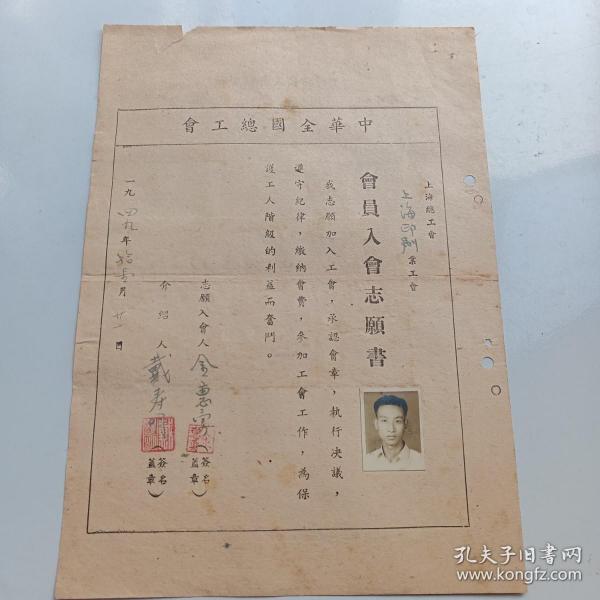 會工總國全華中
上海總工會
上海印刷業工會
會員入會志願書
我志願加入工會，承認會章，執行决議，
遵守紀律，繳納會費，參加工會工作，為保
護工人階級的利益而奮鬥。
志願入會人 金惠（簽名蓋章）
介紹人 戴壽（簽名蓋章）
一九四九年拾壹月廿日
孔夫子旧书网
www.kongfz.com